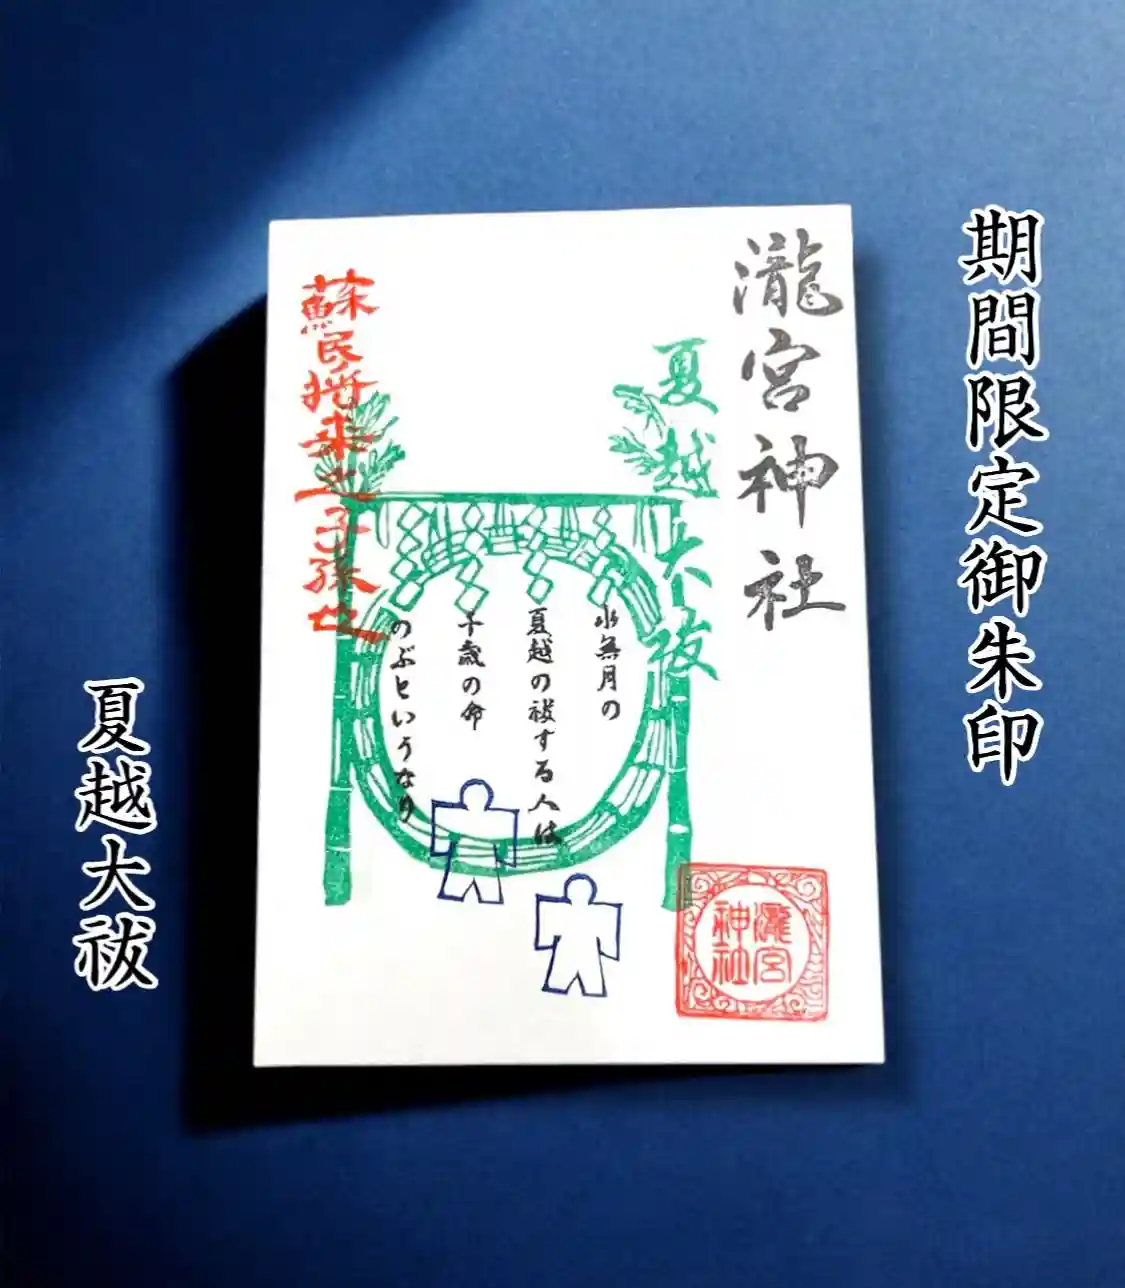 期間限定御朱印
瀧宮神社
夏越大祓
水無月の
夏越の祓する人は
千歳の命
のぶというなり
蘇民将来之子孫也
瀧宮
神社
夏越大祓